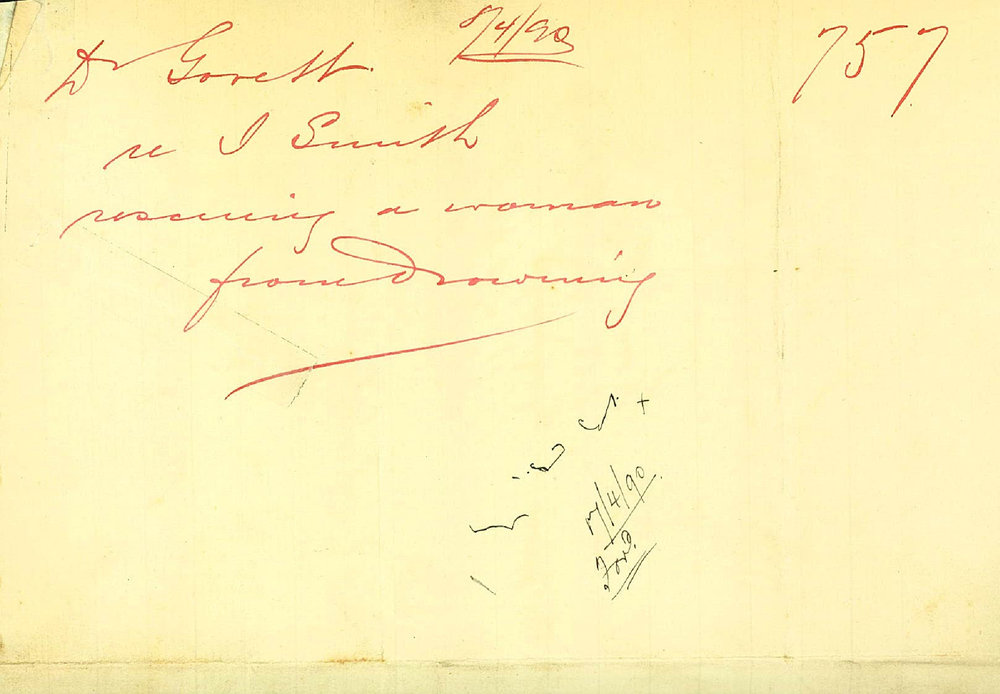 Dr Gorett. 17/4/90 757
re I Smith
rescuing a woman
from Drowning
17/4/90